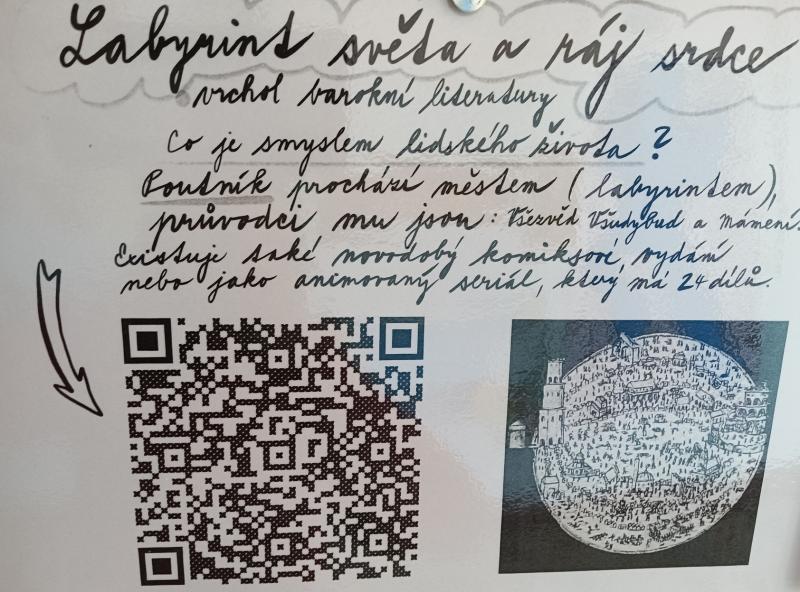 Labyrint světa a ráj srdce
vrchol barokní literatury
Co je smyslem lidského života?
Poutník prochází městem (labyrintem),
průvodci mu jsou: Všezvěd Všudybud a Mámení.
Existuje také novodobý komiksové vydání
nebo jako animovaný seriál, který má 24 dílů.